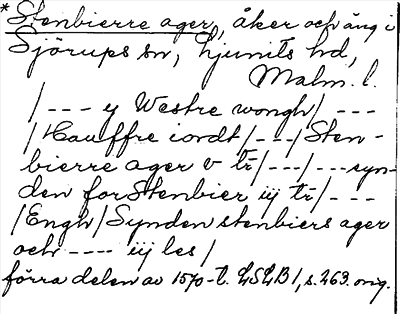 * Stenbierre ager, åker och äng i
Sjörups sn, Ljunits hd,
Malm. l.
/--- y Westre wongh/ ---
/Hauffre iordt/---/Sten-
bierre ager v tr/---/---syn-
den for Stenbier iij tr/---
/Engh/Synden stenbiers ager
och ---- iij les/
förra delen av 1570-t. LSLB 1, s. 263. orig.